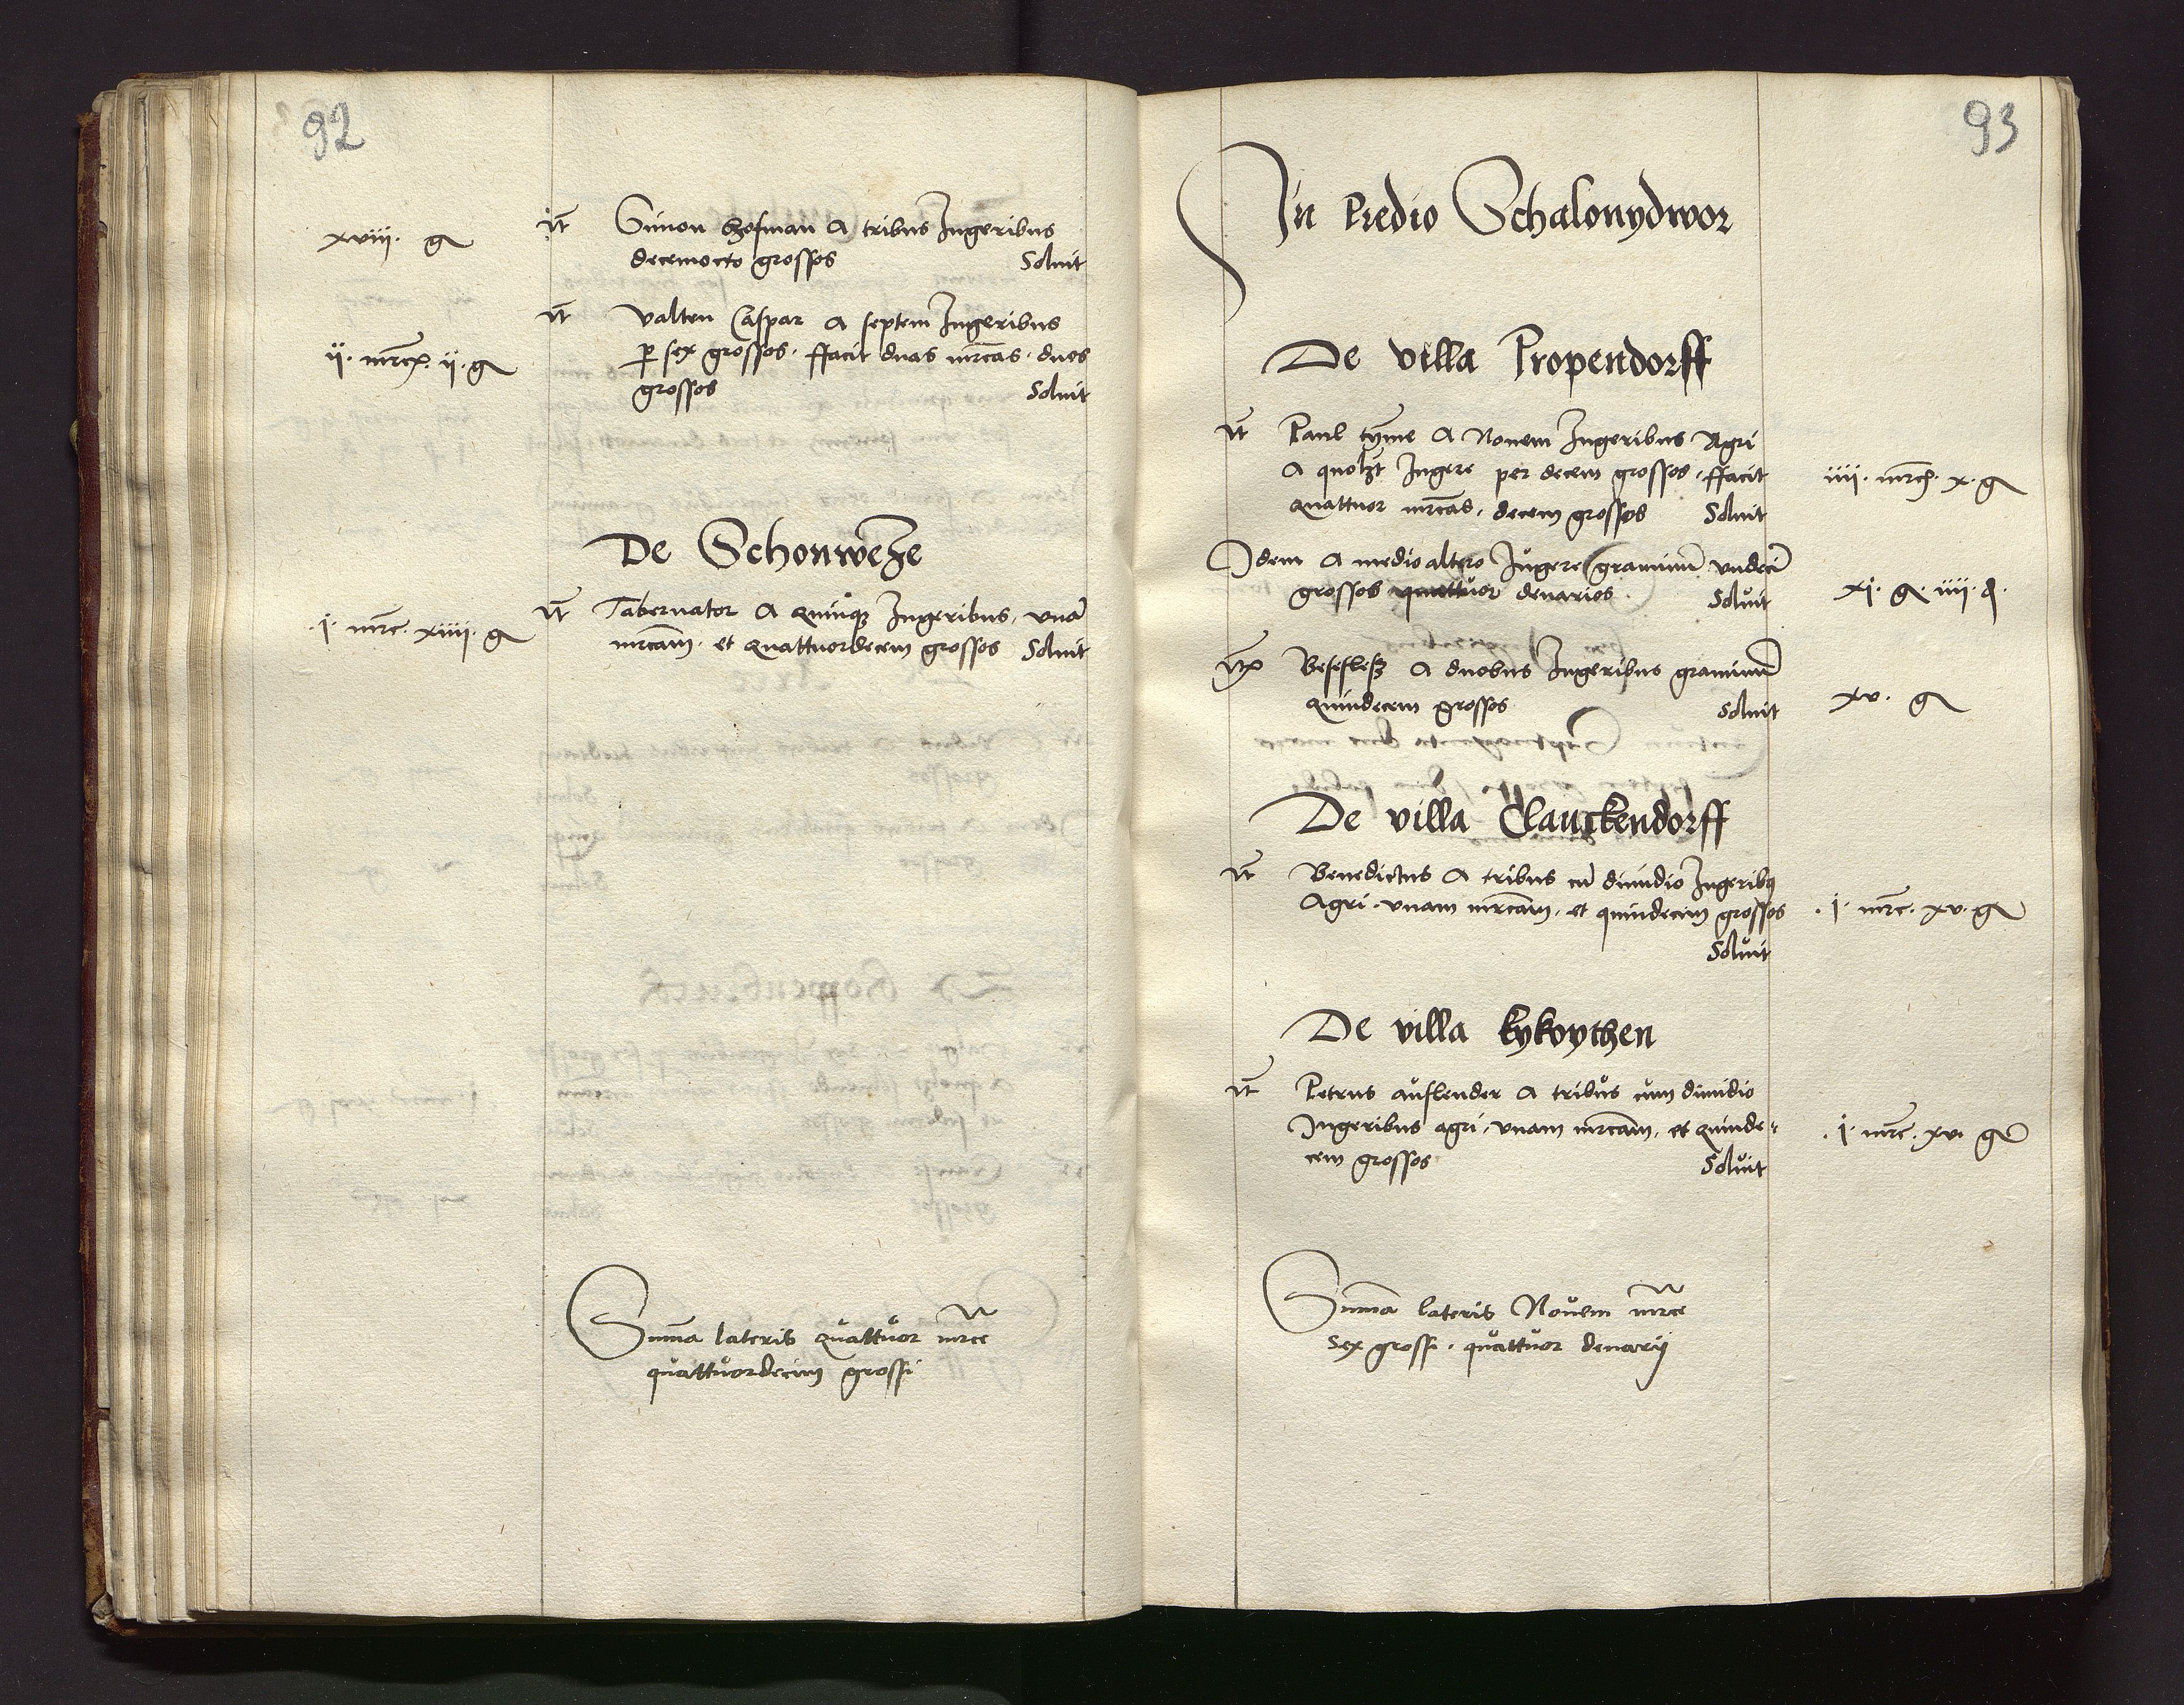 92
xviii. g
nt Simon hofman A tribus Jugeribus
decemocto grossos Soluit
nt valten Caspar A septem Jugeribus
ii. mrcx. ii. g
p sex grossos. ffacit duas mrcas. duos
grossos Soluit
De Schonweze
.i. mrc. xiiii. g
nt Tabernator A quinqz Jugeribus, vna
mrcam. et quattuordecem grossos Soluit
Suma lateris quattuor mrce
quattuordecim grossi
93
In Predio Schalonydwor
De villa Propendorff
nt Paul tyme A Nouem Jugeribus Agri
A quolzt Jugere per decem grossos, ffacit
iiii. mrc. x. g
quattuor mrcas, decem grossos Soluit
Idem A medioaltero Jugere graminu vndeci
grossos quattuor denarios Soluit
xi. g. iiii. d.
A duobus Jugeribus graminu
quindecem grossos Soluit
xv. g
De villa Clauckendorff
nt Benedictus A tribus cu dimidio Jugeribus
Agri. vnam mrcam, et quindecim grossos
.i. mrc. xv. g
Soluit
De villa kykoythen
nt Petrus auslender A tribus cum dimidio
Jugeribus agri, vnam mrcam, et quinde-
.i. mrc. xv. g
cem grossos Soluit
Suma lateris Nouem mrce
Sex grossi. quattuor denarij